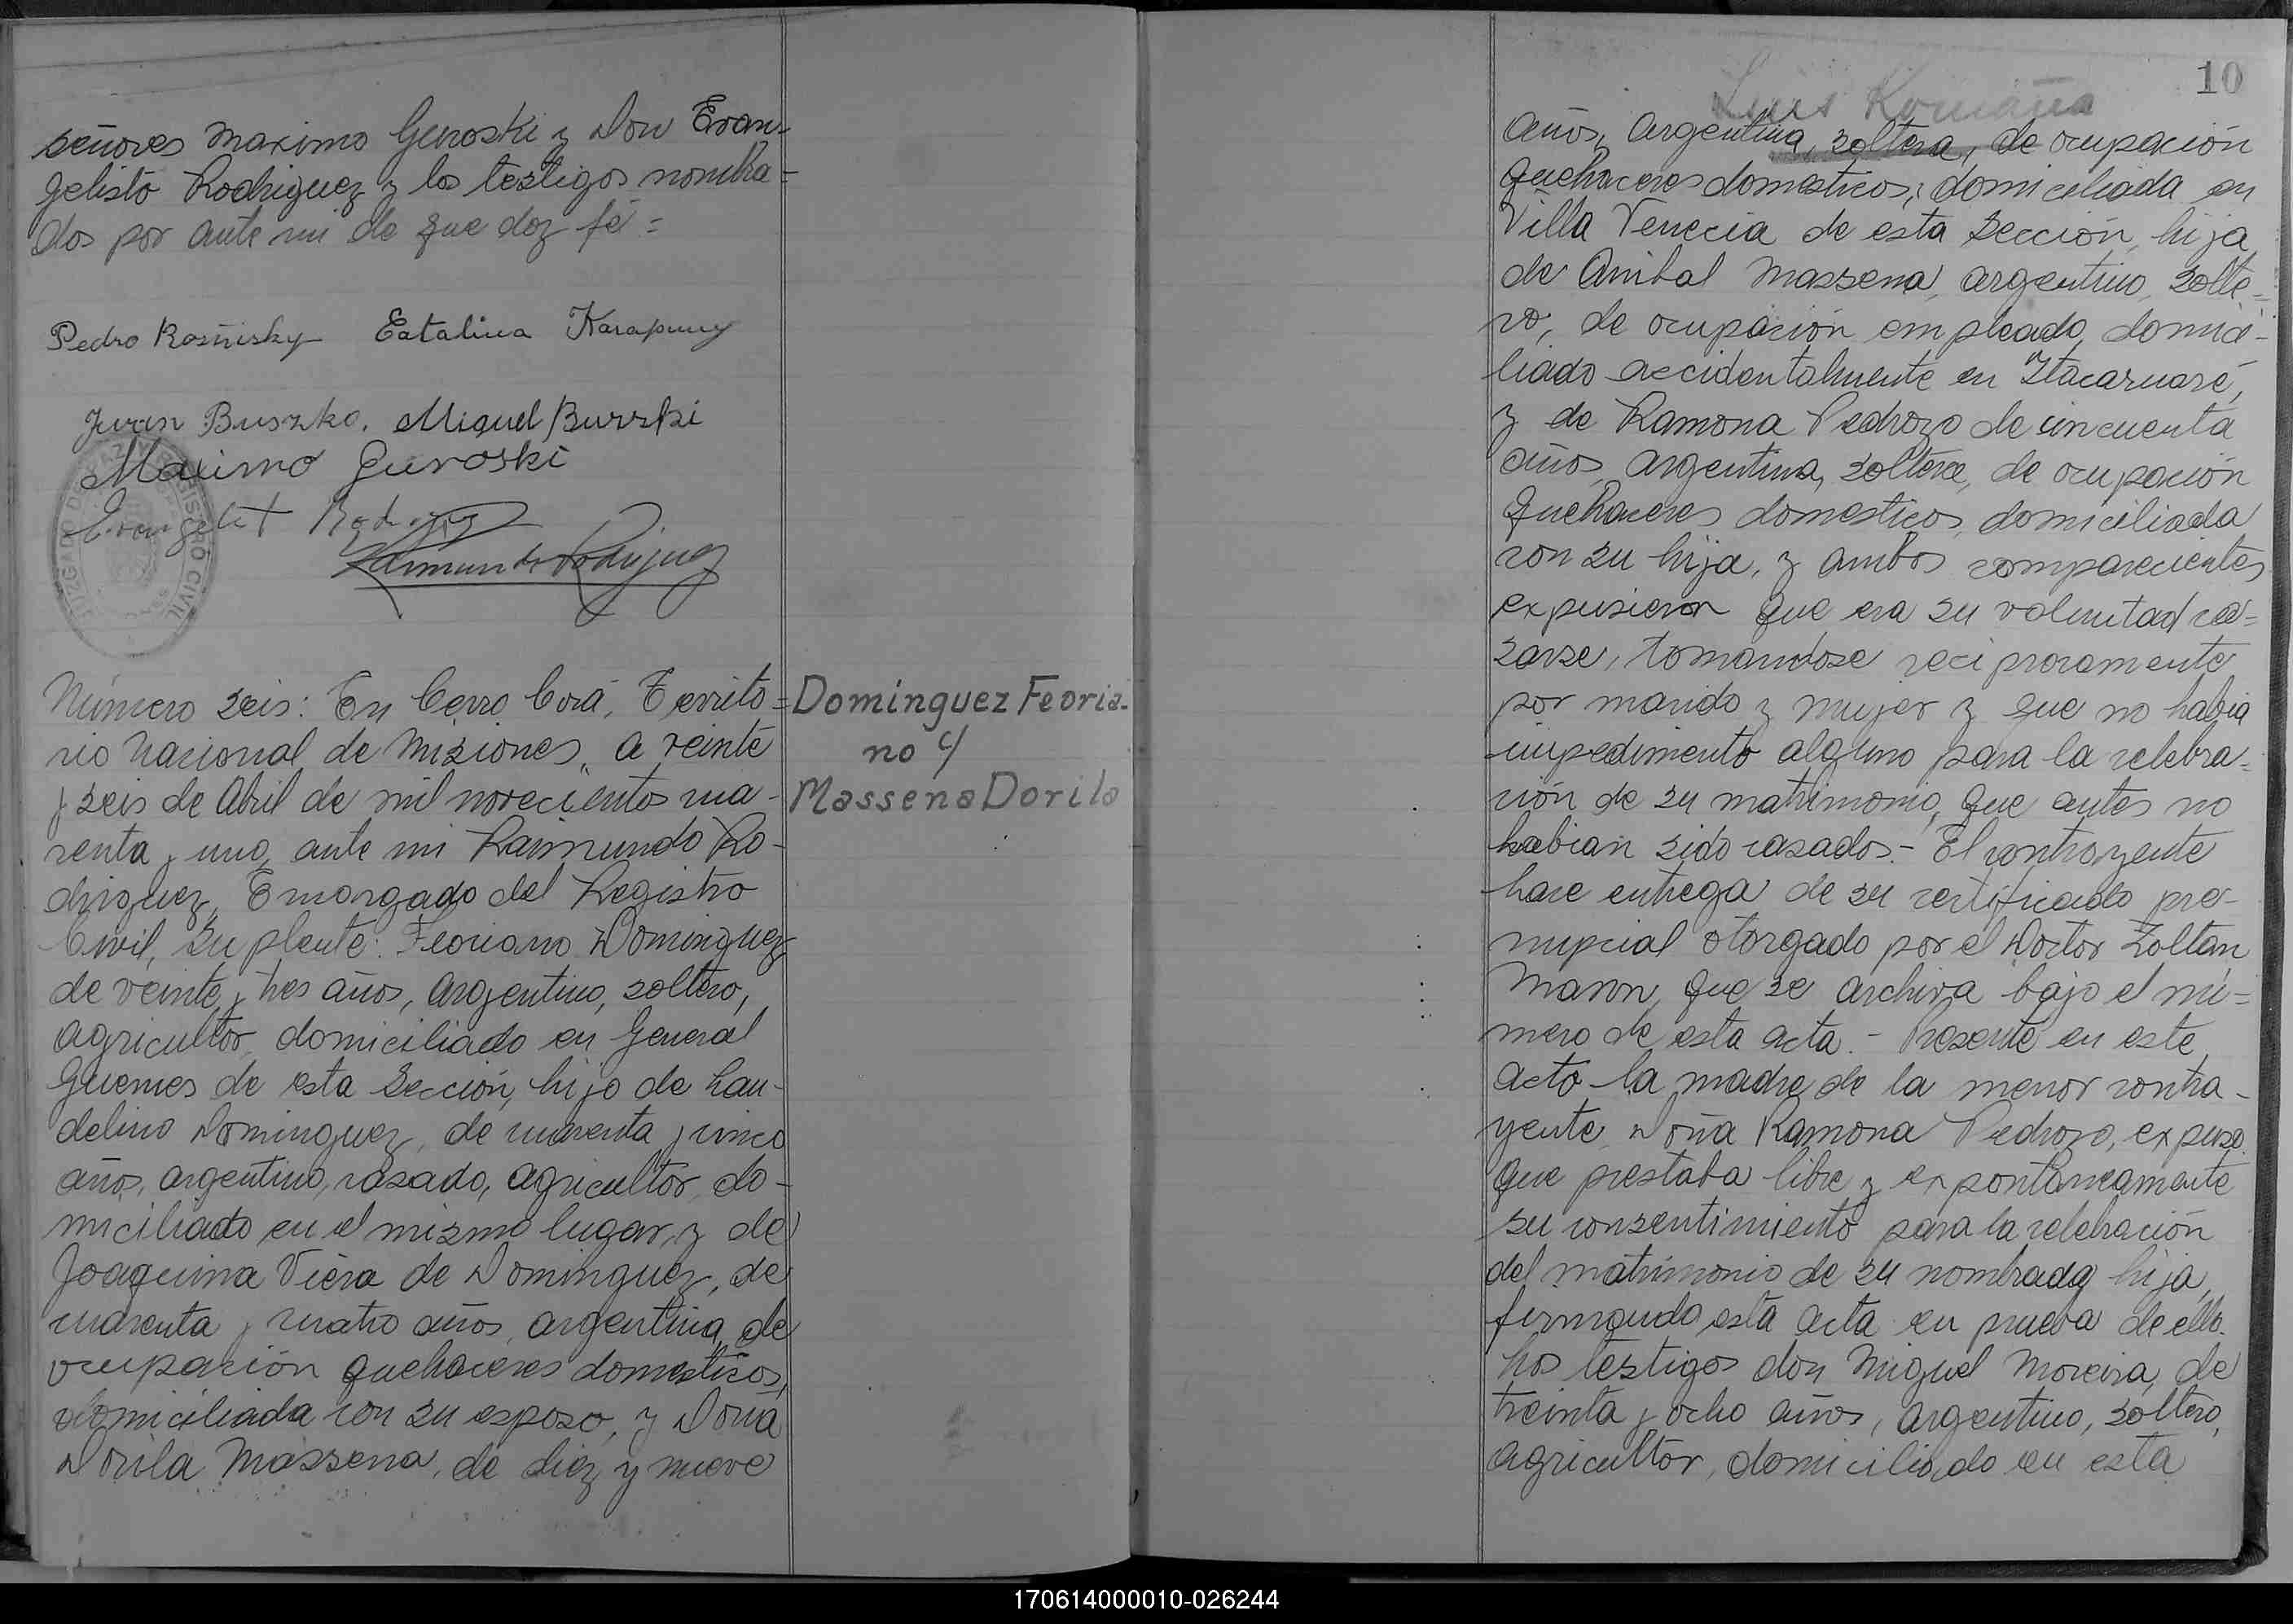 señores Maximo Guroski y Don Evan-
gelisto Rodriguez y los testigos nombra=
dos por ante mi de que doy fé=
Pedro Rosñisky Catalina Karapuny
Juan Buszko. Miguel Burski
Maximo Guroski
Evangelist Rodrigz
Raimundo Rodriguez
JUZGADO DE PAZ REGISTRO CIVIL
Número seis: En Cerro Corá, Territo=
rio Nacional de Misiones, a veinte
y seis de Abril de mil novecientos cua-
renta y uno, ante mi Raimundo Ro-
driguez, Encargado del Registro
Civil, Suplente: Feoriano Dominguez
de veinte y tres años, argentino, soltero,
agricultor, domiciliado en General
Guemes de esta Sección, hijo de Lau-
delino Dominguez, de cuarenta y cinco
años, argentino, casado, agricultor, do-
miciliado en el mismo lugar, y de
Joaquina Viera de Dominguez, de
cuarenta y cuatro años, argentina, de
ocupación quehaceres domesticos,
domiciliada con su esposo, y Doña
Dorila Massena, de diez y nueve
Dominguez Feoria-
no c/
Massena Dorila
10
Luis Romaña
años, argentina, soltera, de ocupación
quehaceres domesticos, domiciliada en
Villa Venecia de esta Sección, hija
de Anibal Massena, argentino, solte=
ro, de ocupación empleado, domici-
liado accidentalmente en Itacaruaré,
y de Ramona Pedrozo de cincuenta
años, argentina, soltera, de ocupación
quehaceres domesticos, domiciliada
con su hija, y ambos comparecientes
expusieron que era su voluntad ca=
sarse, tomandose reciprocamente
por marido y mujer y que no habia
impedimento alguno para la celebra=
ción de su matrimonio, que antes no
habian sido casados.- El contrayente
hace entrega de su certificado pre-
nupcial otorgado por el Doctor Zoltan
Maron, que se archiva bajo el nú=
mero de esta acta.- Presente en este
acto la madre de la menor contra-
yente, Doña Ramona Pedrozo, expuso
que prestaba libre y expontaneamente
su consentimiento para la celebración
del matrimonio de su nombrada hija,
firmando esta acta en prueba de ello.
Los testigos don Miguel Moreira, de
treinta y ocho años, argentino, soltero,
agricultor, domiciliado en esta
170614000010-026244